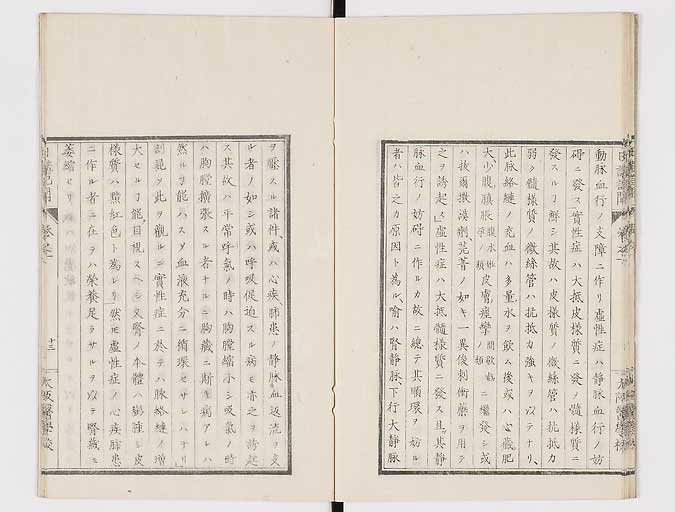 動脉血行ノ支障ニ作リ虚性症ハ静脉血行ノ妨
碍ニ發ス實性症ハ大抵皮様質ニ發ノ髓様質ニ
發スルヿ鮮シ其故ハ皮様質ノ微絲管ハ抗抵力
弱ク髓様質ノ微絲管ハ抗抵力強キヲ以テナリ
此脉絡縺ノ充血ハ多量水ヲ飲ム後或ハ心臓肥
大少腹膨脹皮膚痙攣ニ繼發シ或
ハ抜爾撒漠剌芫菁ノ如キ一異俊刺衝藥ヲ用テ
之ヲ誘起ス虚性症ハ大抵髓様質ニ發ス且其静
脉血行ノ妨碍ニ作ルカ故ニ總テ其順環ヲ妨ル
者ハ皆之カ原因ト為ル喻ハ腎静脉下行大静脉
ヲ壓スル諸件或ハ心疾肺患ノ静脉血返流ヲ支
ル者ノ如シ或ハ呼吸促迫スル病モ亦之ヲ誘起
ス其故ハ平常呼氣ノ時ハ胸膛縮小シ吸氣ノ時
ハ胸膛擴張スル者ナルニ胸臓ニ斯キ病アレハ
然ルヿ能ハスメ血液充分ニ循環セサレハナリ
剖屍ク此ヲ觀ルニ實性症ニ於テハ脉絡縺ノ増
大セルヿ能目視スヘシ又腎ノ本體ハ膨腫シ皮
様質ハ黯紅色ト為レリ然モ虚性症ノ心疾肺患
ニ作ル者ニ在テハ榮養足ラサルヲ以テ腎臓ニ
萎縮セリ
十三
大阪醫學校